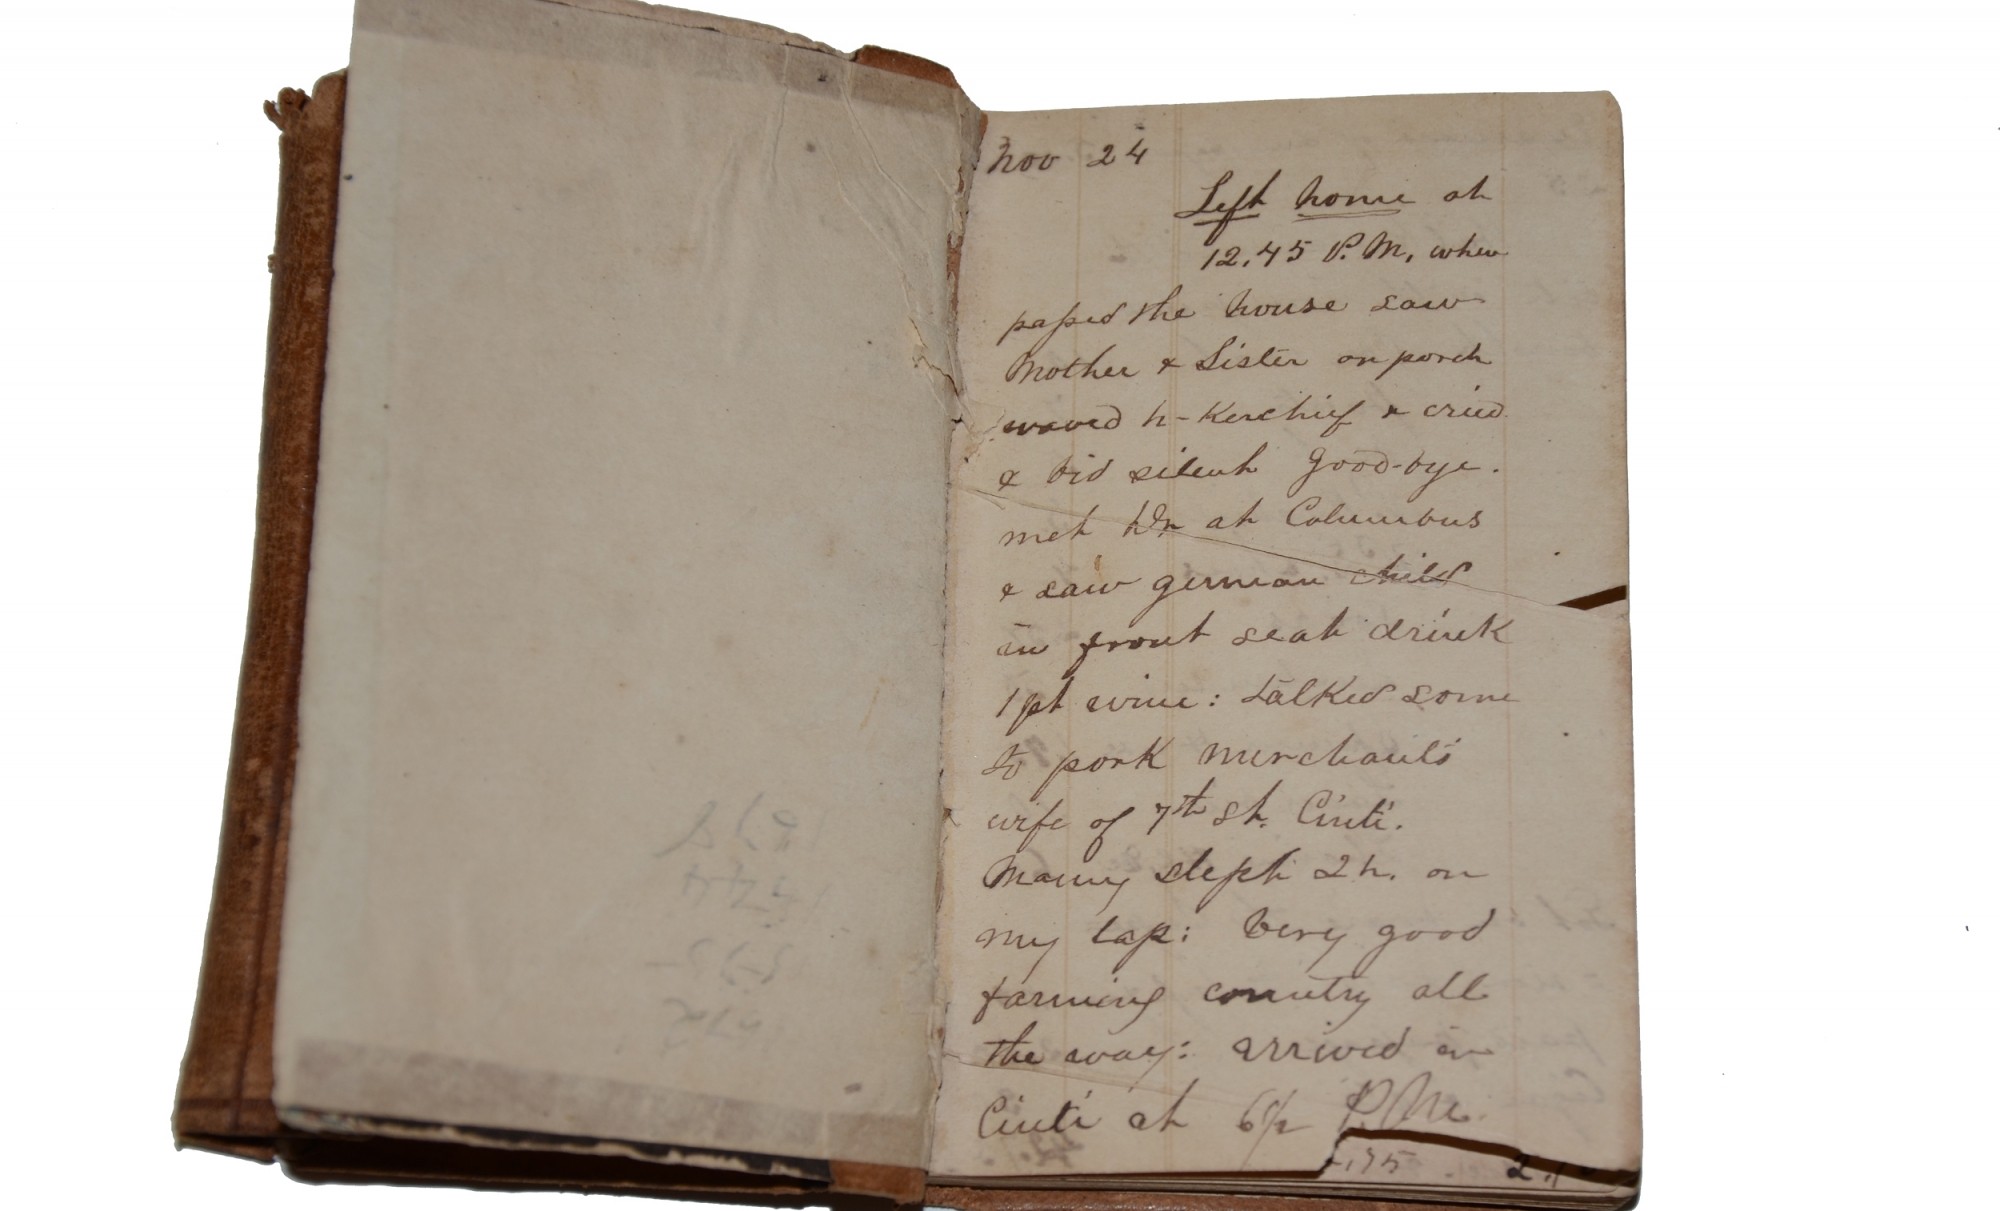 Nov 24
Left home at
12.45 P.M. when
passed the house saw
Mother & Sister on porch
waved h-Kerchief & cried
& bid silent Good-bye.
met at Columbus
& saw german child
in front seat drink
1 pt wine: talked some
to pork merchants
wife of 7th St. Cinti.
Manny slept 2 h. on
my lap: Very good
farming country all
the way: arrived in
Cinti at 6 1/2 P.M.